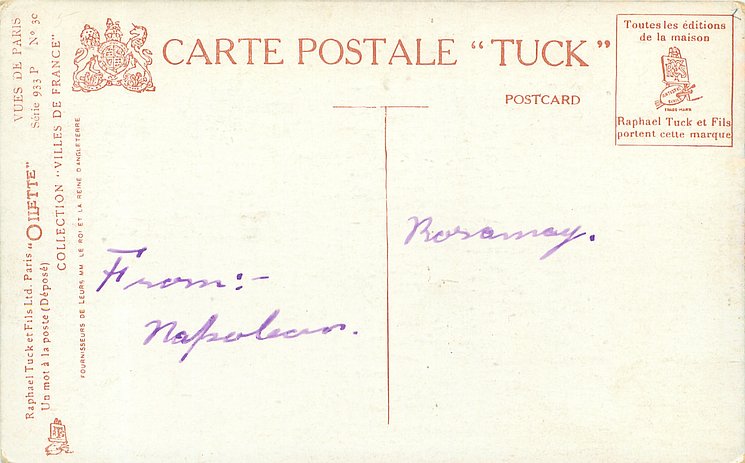 CARTE POSTALE "TUCK"
POSTCARD
Toutes les éditions
de la maison
Raphael Tuck et Fils
portent cette marque
VUES DE PARIS
Série 933 P Nº 3c
COLLECTION "VILLES DE FRANCE"
FOURNISSEURS DE LEURS MM LE ROI ET LA REINE D'ANGLETERRE
Raphael Tuck et Fils Ltd. Paris "OILETTE"
Un mot à la poste (Déposé)
From:-
Napoleon.
Rosamay.